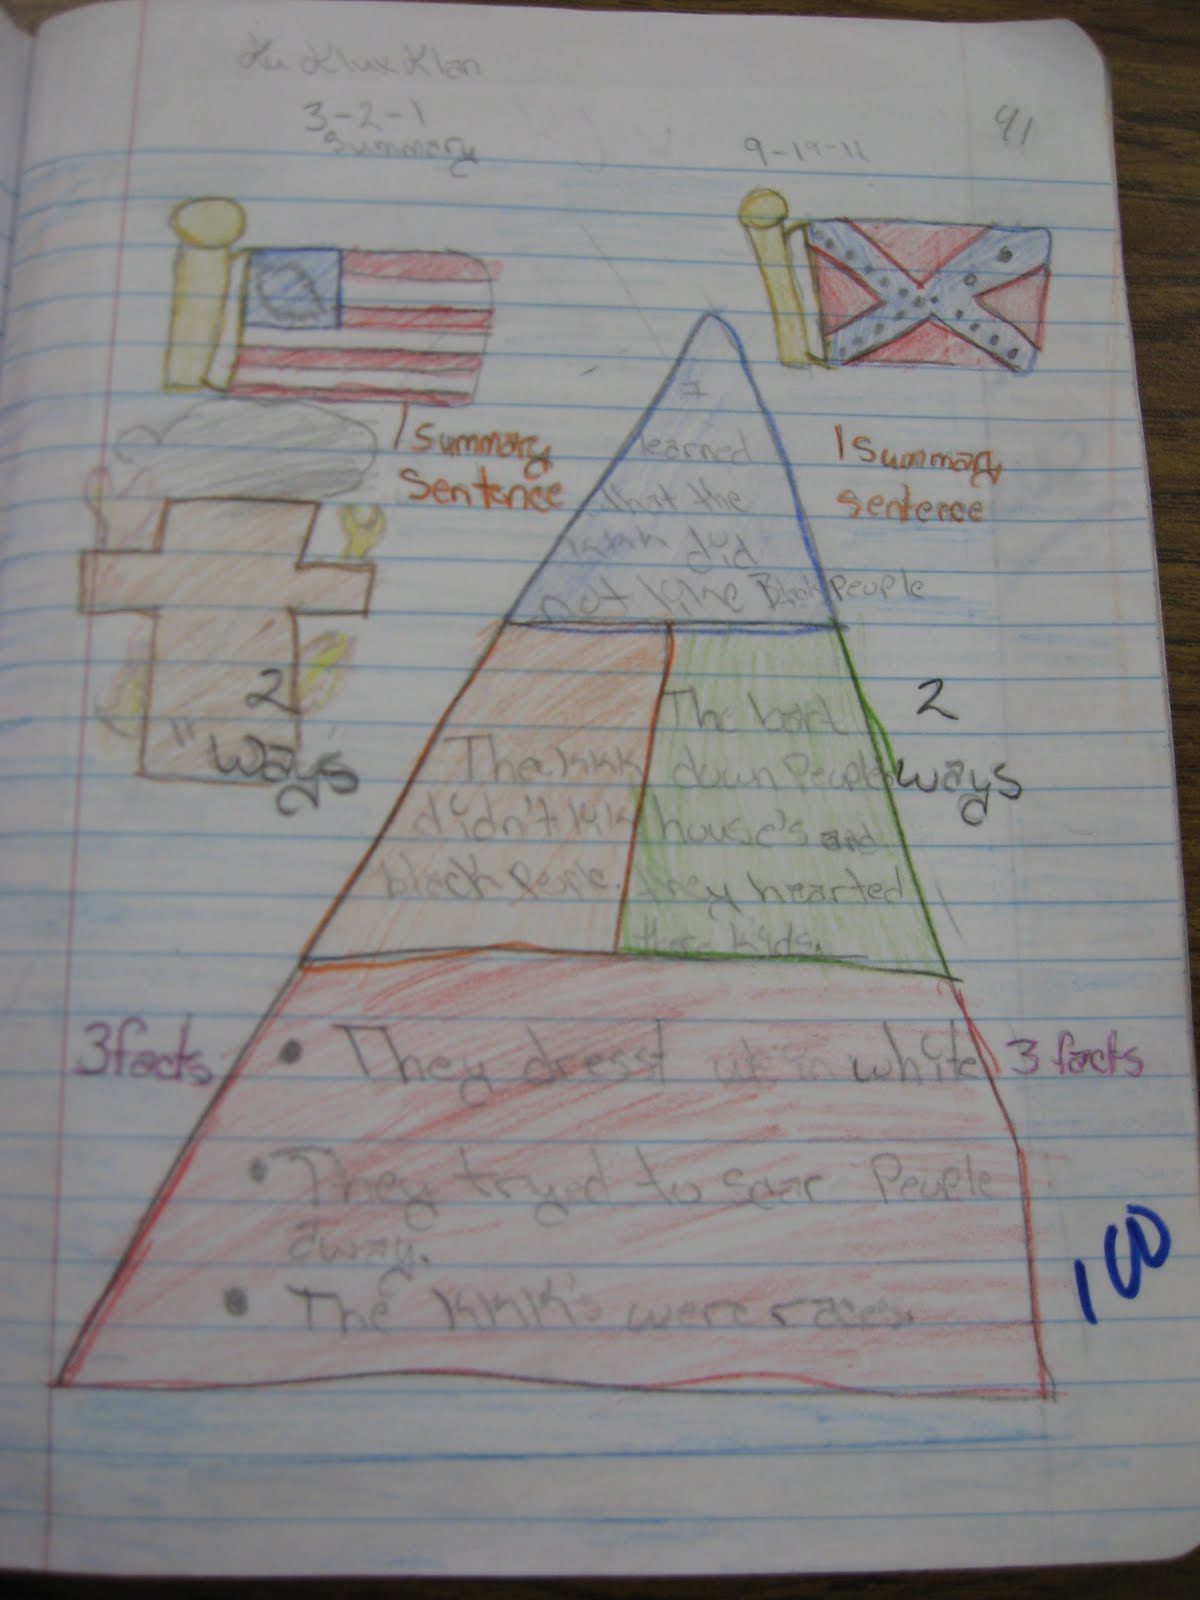 Ku Klux Klan
3-2-1
Summary
9-19-11
91
1 Summary
Sentence
I
learned
that the
KKK did
not like Black People
1 Summary
sentence
2
"ways"
The KKK
didn't lik
black People.
The burd
down People's
house's and
they hearted
there kids.
2
ways
3 facts
• They dresst up in white
• They tryed to scar People
away.
• The KKK's were races.
3 facts
100